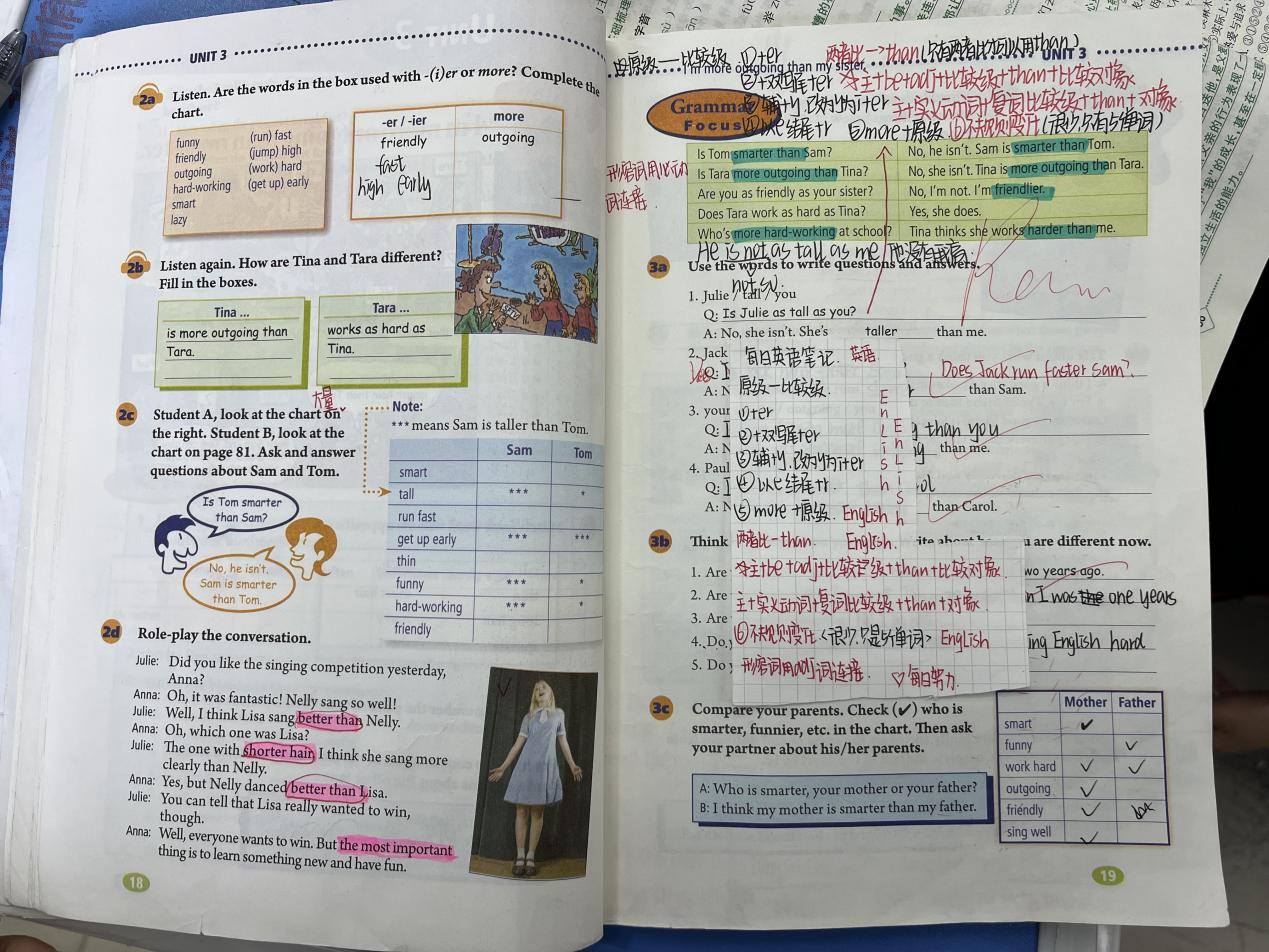 UNIT 3
2a
Listen. Are the words in the box used with -(i)er or more? Complete the
chart.
funny (run) fast
friendly (jump) high
outgoing (work) hard
hard-working (get up) early
smart
lazy
-er / -ier more
friendly outgoing
fast
high early
2b
Listen again. How are Tina and Tara different?
Fill in the boxes.
Tina ...
is more outgoing than
Tara.
Tara ...
works as hard as
Tina.
大量
2c
Student A, look at the chart on
the right. Student B, look at the
chart on page 81. Ask and answer
questions about Sam and Tom.
Note:
*** means Sam is taller than Tom.
Sam Tom
smart
tall *** *
run fast
get up early *** ***
thin
funny *** *
hard-working *** *
friendly
Is Tom smarter
than Sam?
No, he isn't.
Sam is smarter
than Tom.
2d
Role-play the conversation.
Julie: Did you like the singing competition yesterday,
Anna?
Anna: Oh, it was fantastic! Nelly sang so well!
Julie: Well, I think Lisa sang better than Nelly.
Anna: Oh, which one was Lisa?
Julie: The one with shorter hair. I think she sang more
clearly than Nelly.
Anna: Yes, but Nelly danced better than Lisa.
Julie: You can tell that Lisa really wanted to win,
though.
Anna: Well, everyone wants to win. But the most important
thing is to learn something new and have fun.
18
原级一比较级 ①+er 两者比→than(只有两者比可以用than)
I'm more outgoing than my sister. UNIT 3
②+双写尾+er 主+be+adj+比较级+than+比较对象
③辅+y.改y为i+er 主+实义动词+副词比较级+than+对象
结尾+r ⑤more+原级 ⑥不规则变化(很少,只有5个单词)
Grammar
Focus
Is Tom smarter than Sam? No, he isn't. Sam is smarter than Tom.
Is Tara more outgoing than Tina? No, she isn't. Tina is more outgoing than Tara.
Are you as friendly as your sister? No, I'm not. I'm friendlier.
Does Tara work as hard as Tina? Yes, she does.
Who's more hard-working at school? Tina thinks she works harder than me.
形容词用
词连接.
He is not as tall as me 他没有我高.
3a
Use the words to write questions and answers.
not so.
1. Julie / tall / you
Q: Is Julie as tall as you?
A: No, she isn't. She's taller than me.
2. Jack
Q:
Does Jack run faster Sam?
than Sam.
3. your
Q: than you
than me.
4. Paul
Q:
than Carol.
每日英语笔记. 英语.
原级一比较级.
①+er
②+双写尾+er
③辅+y.改y为i+er
④以e结尾+r.
⑤more+原级. English
English
English
两者比-than. English.
主+be+adj+比较级+than+比较对象.
主+实义动词+副词比较级+than+对象.
⑥不规则变化<很少.只是5个单词> English
形容词用adj词连接. ♡每日努力.
3b
Think are different now.
1. Are two years ago.
2. Are I was one years
3. Are
4. Do English hard
5. Do
3c
Compare your parents. Check (✔) who is
smarter, funnier, etc. in the chart. Then ask
your partner about his/her parents.
A: Who is smarter, your mother or your father?
B: I think my mother is smarter than my father.
Mother Father
smart ✔
funny ✓
work hard ✓ ✓
outgoing ✓
friendly ✓
sing well ✓
19